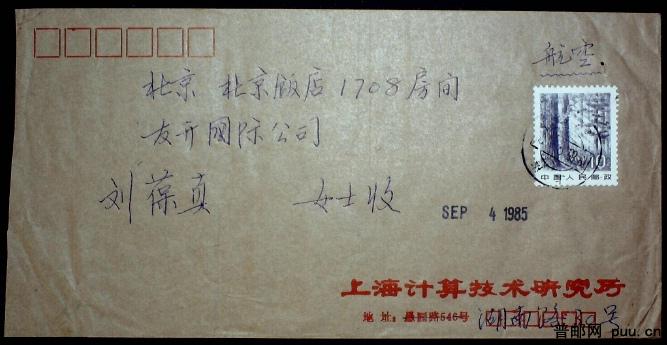 航空.
北京 北京饭店1708房间
友开國际公司
10
中国人民邮政
刘葆真 女士收
SEP 4 1985
上海计算技术研究所
地址：愚园路546号 湖南路
普邮网 puu.cn